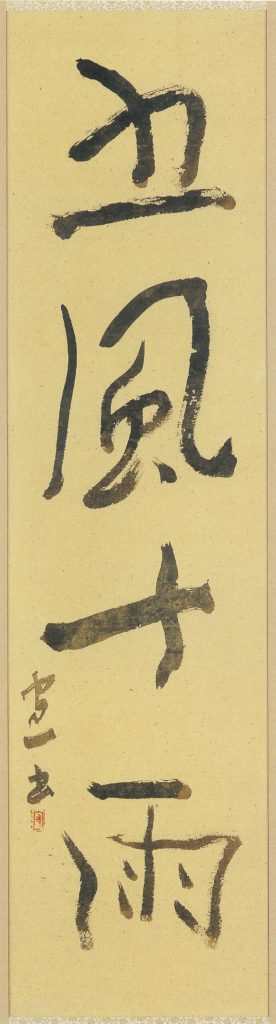 五風十雨
憲一書